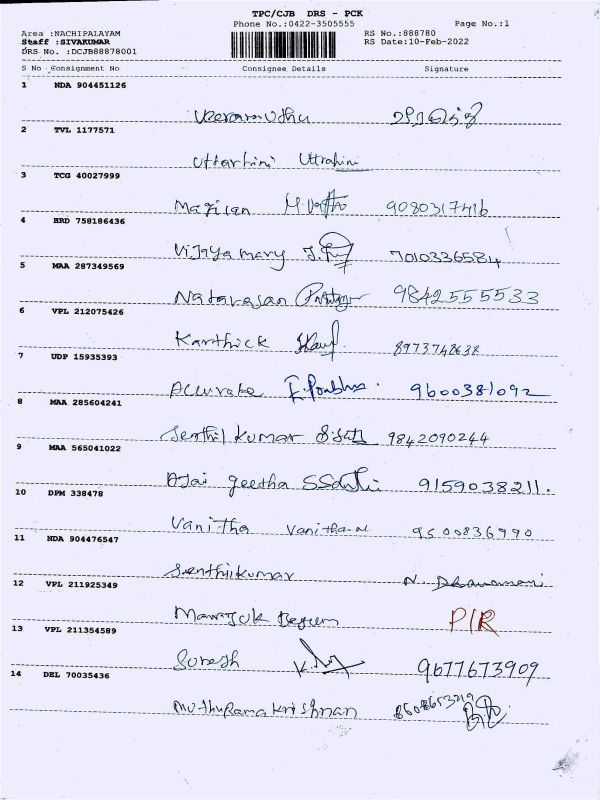 TPC/CJB DRS - PCK
Phone No.:0422-3505555 Page No.:1
Area :NACHIPALAYAM RS No.:888780
Staff :SIVAKUMAR RS Date:10-Feb-2022
DRS No. :DCJB88878001
S No Consignment No Consignee Details Signature
1 NDA 904451126
Veeramuthu
2 TVL 1177571
Uttarhini Uttrahini
3 TCG 40027999
Magisan 9080317416
4 HRD 758186436
Vijaya mary 7010336584
5 MAA 287349569
Natarasan 9842555533
6 VPL 212075426
Karthick 8973748638
7 UDP 15935393
Accurate 9600381092
8 MAA 285604241
Senthil kumar 9842090244
9 MAA 565041022
Ajai geetha 9159038211.
10 DPM 338478
Vanitha Vanitha.N 9500836990
11 NDA 904476547
Senthilkumar
12 VPL 211925349
Begum P/R
13 VPL 211354589
Suresh 9677673909
14 DEL 70035436
Muthuramakrishnan